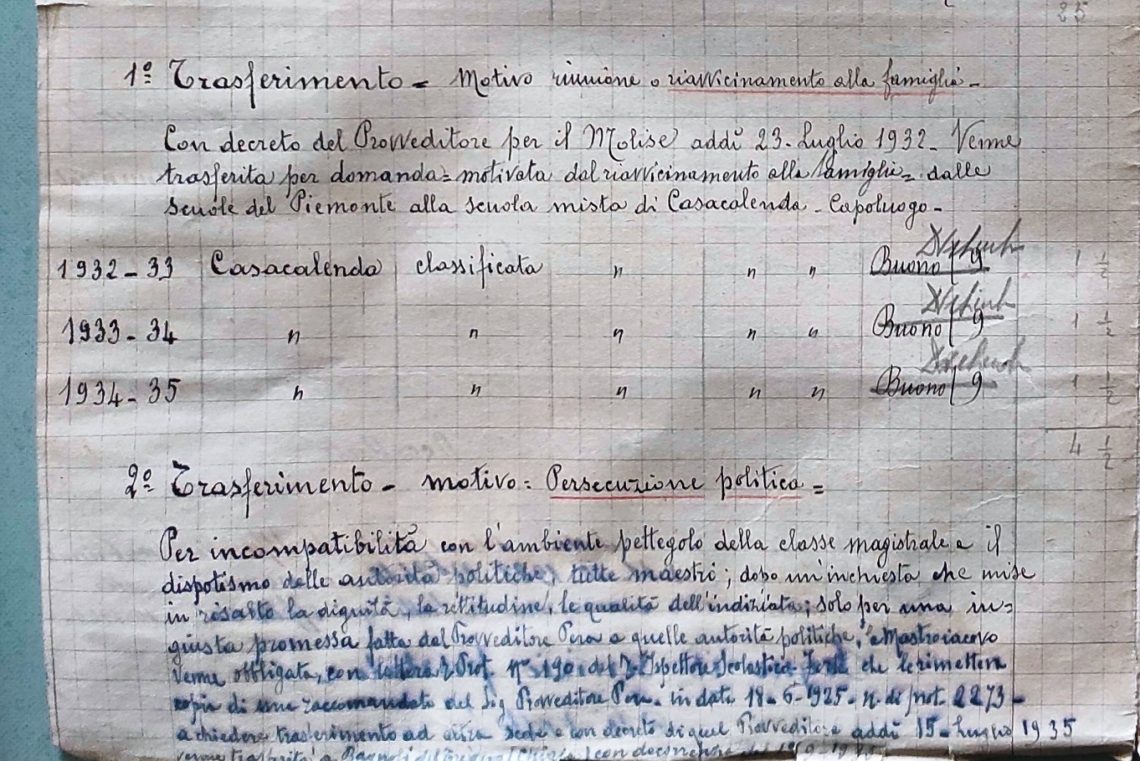 25
1º Trasferimento = Motivo riunione o riavvicinamento alla famiglia -
Con decreto del Provveditore per il Molise addì 23 - Luglio 1932 - Venne
trasferita per domanda = motivata dal riavvicinamento alla famiglia = dalle
scuole del Piemonte alla scuola mista di Casacalenda - Capoluogo -
1932 - 33 Casacalenda classificata " " " Buono 9 1 1/2
1933 - 34 " " " " " Buono 9 1 1/2
1934 - 35 " " " " " Buono 9 1 1/2
4 1/2
2º Trasferimento - motivo = Persecuzione politica =
Per incompatibilità con l'ambiente pettegolo della classe magistrale e il
dispotismo delle autorità politiche, tutte maestri; dopo un'inchiesta che mise
in risalto la dignità, la rettitudine, le qualità dell'indiziata; solo per una in=
giusta promessa fatta dal Provveditore a quelle autorità politiche, Mastroiacovo
Venne obbligata, con lettera Prot. Nº 190 Ispettore Scolastico che le rimetteva
copia di una raccomandata del Sig Provveditore in data 18 - 6 - 1925 - n. di prot. 2273 -
a chiedere trasferimento ad altra sede e con decreto di quel Provveditore addì 15 - Luglio 1935
venne trasferita a